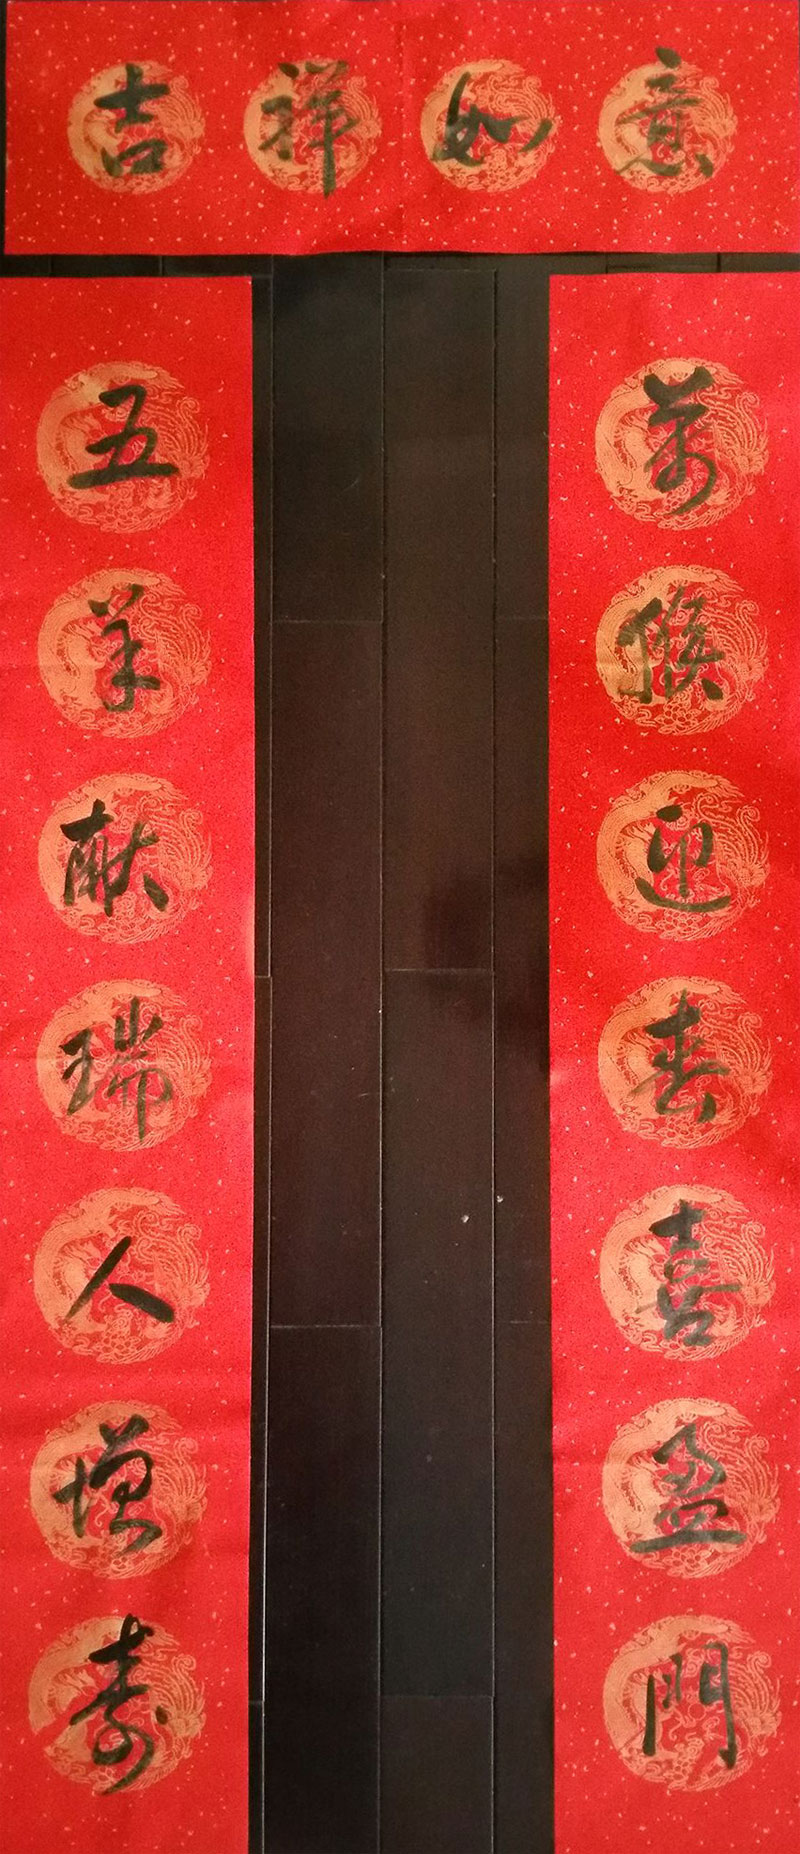 吉祥如意
五羊献瑞人增寿
萬猴迎春喜盈門